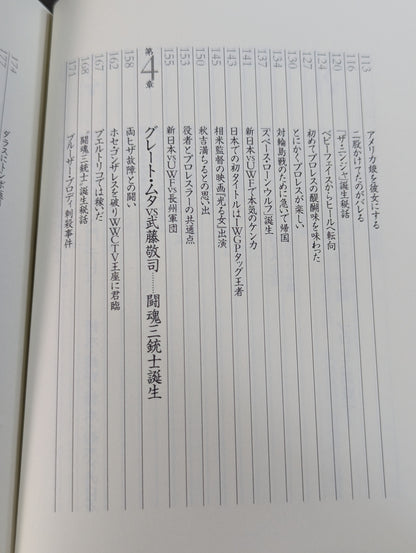 113 アメリカ娘を彼女にする
116 二股かけてたのがバレる
120 「ザ・ニンジャ」誕生秘話
124 ベビーフェイスからヒールへ転向
127 初めてプロレスの醍醐味を味わった
130 とにかくプロレスが楽しい
134 対輪島戦のために急いで帰国
137 「スペース・ローン・ウルフ」誕生
141 新日本vsUWFで本気のケンカ
143 日本での初タイトルはIWGPタッグ王者
145 相米監督の映画『光る女』出演
150 秋吉満ちるとの思い出
153 役者とプロレスラーの共通点
155 新日本vsUWFvs長州軍団
第4章 グレート・ムタvs武藤敬司……闘魂三銃士誕生
158 両ヒザ故障との闘い
162 ホセ・ゴンザレスを破りWWCTV王座に君臨
167 プエルトリコでは稼いだ
168 “闘魂三銃士”誕生秘話
171 ブルーザー・ブロディ、刺殺事件
174 ダラスにトンボ
177